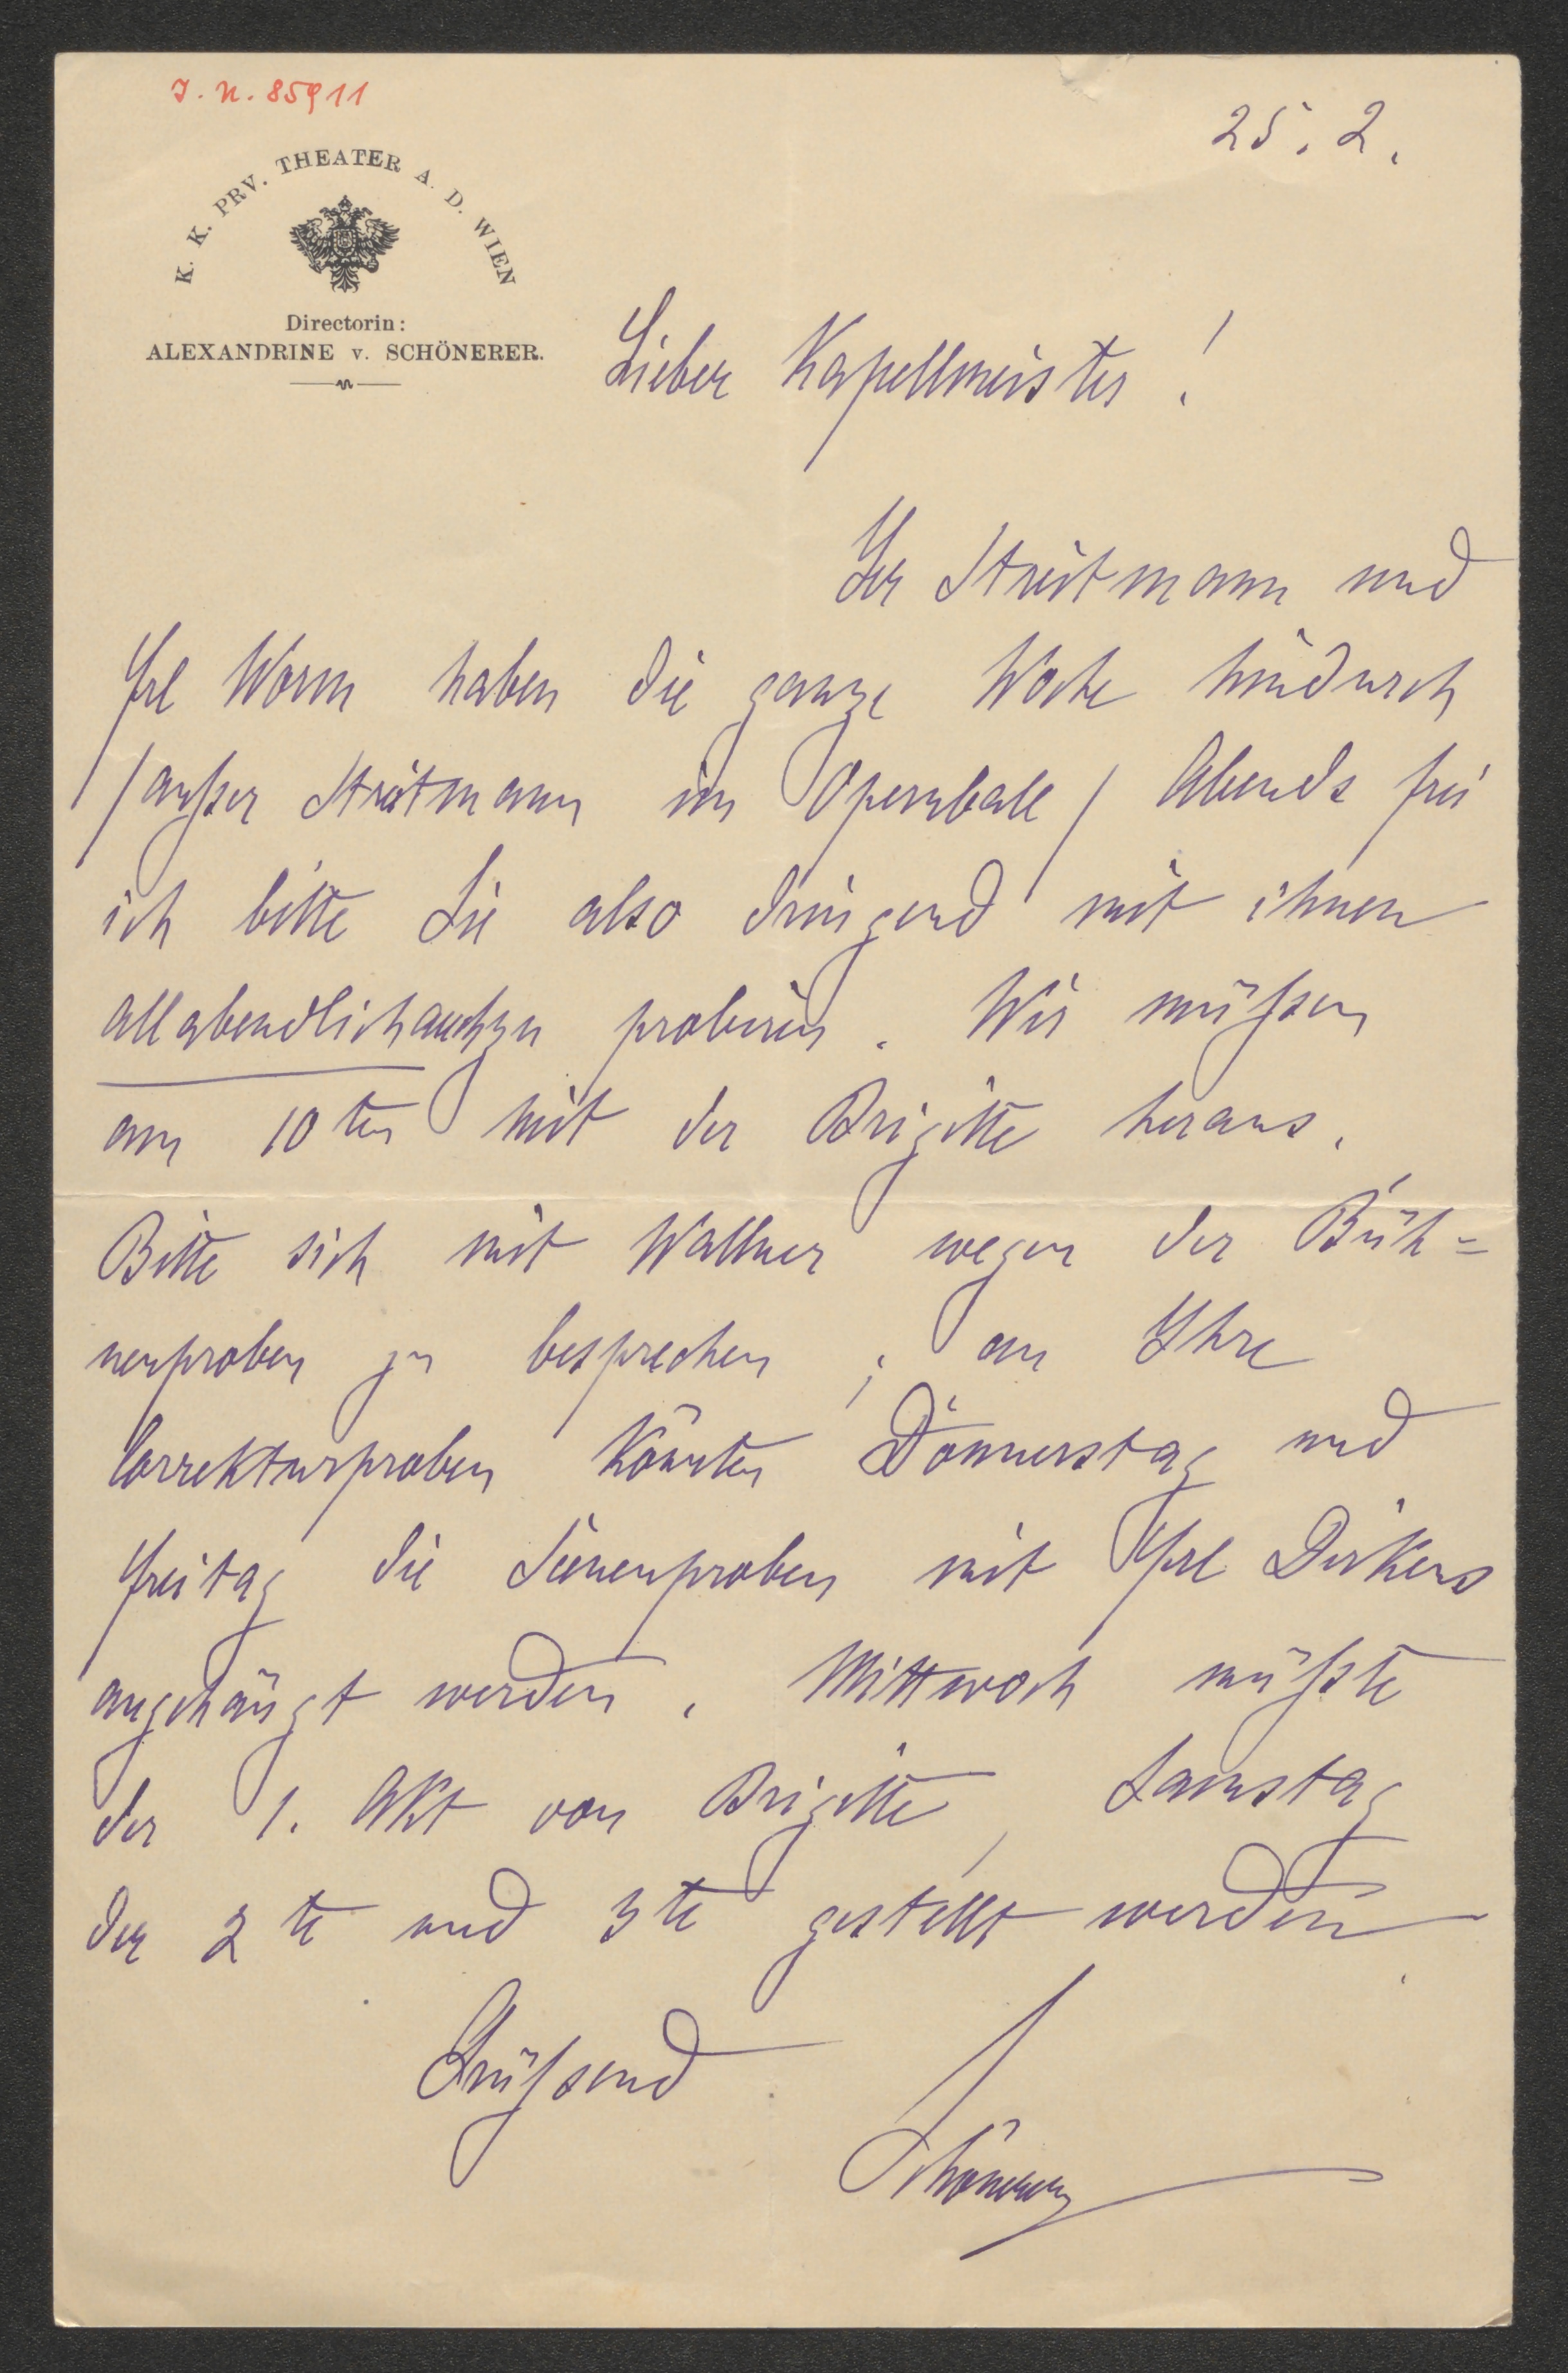 J. N. 85911
25. 2.
K. K. PRV. THEATER A. D. WIEN
Directorin:
ALEXANDRINE v. SCHÖNERER.
Lieber Kapellmeister!
Hr Streitmann und
Frl Worm haben die ganze Woche hindurch
/außer Streitmann im Opernball/ Abends frei
ich bitte Sie also dringend mit ihnen
allabendlich auch zu probiren. Wir müßen
am 10ten mit der Brigitte heraus.
Bitte sich mit Wallner wegen der Büh=
nenproben zu besprechen; an Ihre
Correkturproben könnten Donnerstag und
Freitag die Scenenproben mit Frl Dirkens
angehängt werden. Mittwoch müßte
der 1. Akt von Brigitte, Samstag
der 2te und 3te gestellt werden.
Grüßend
Schönerer